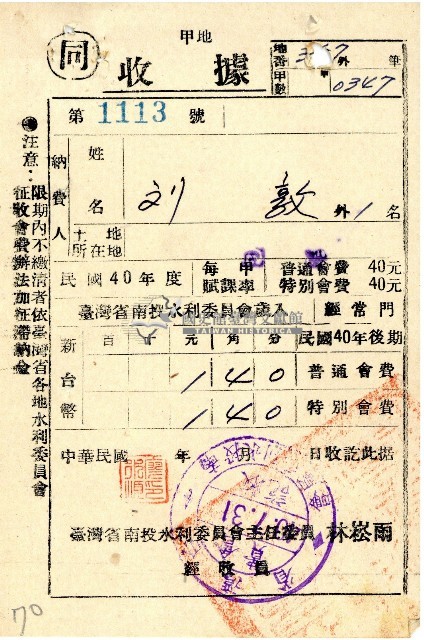 甲地
同
收據
地番 3 7 外 筆
甲數 0347
第 1113 號
納費人
姓名 刘 敦 外 1 名
土地所在地
民國40年度 每甲賦課率 普通會費 40元 特別會費 40元
臺灣省南投水利委員會歲入 經常門
新台幣 百 十 元 角 分 民國40年後期
1 4 0 普通會費
1 4 0 特別會費
中華民國 年 月 日收訖此據
臺灣省南投水利委員會主任委員 林崧雨
經收員
◉注意：限期內不繳清者依臺灣省各地水利委員會
征收會費辦法加征滯納金
TAIWAN HISTORICA
70